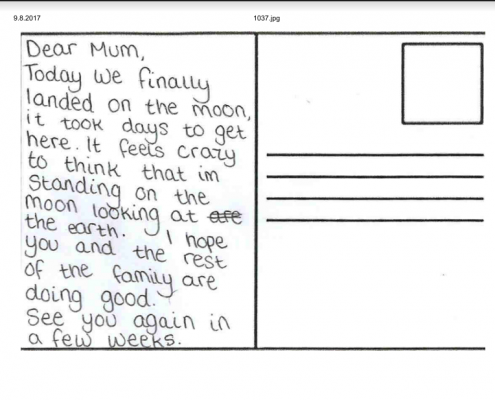 9.8.2017
1037.jpg
Dear Mum,
Today we finally
landed on the moon,
it took days to get
here. It feels crazy
to think that im
Standing on the
moon looking at are
the earth. I hope
you and the rest
of the family are
doing good.
See you again in
a few weeks.